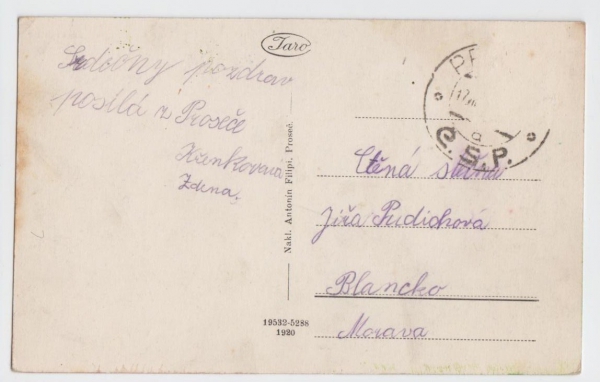 Taro
Srdečný pozdrav
posílá z Proseče
Zdena.
Nakl. Antonín Filipi, Proseč.
19532-5288
1920
Č.S.P.
Ctěná slečna
Jiřa Pudichová
Blancko
Morava